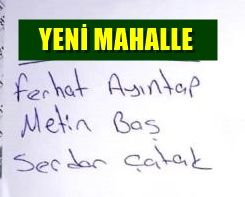 YENİ MAHALLE
Ferhat Ayıntap
Metin Baş
Serdar Çatak